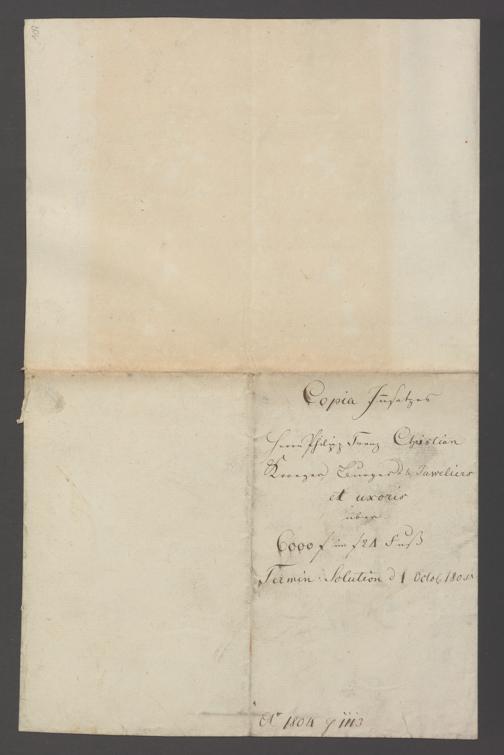 Copia Insatzes
Herrn Philipp Franz Christian
Burgers & Juweliers
et uxoris
über
6000 f im f 24 Fuß
Termin: Solution d 1 Octob. 1805
1804